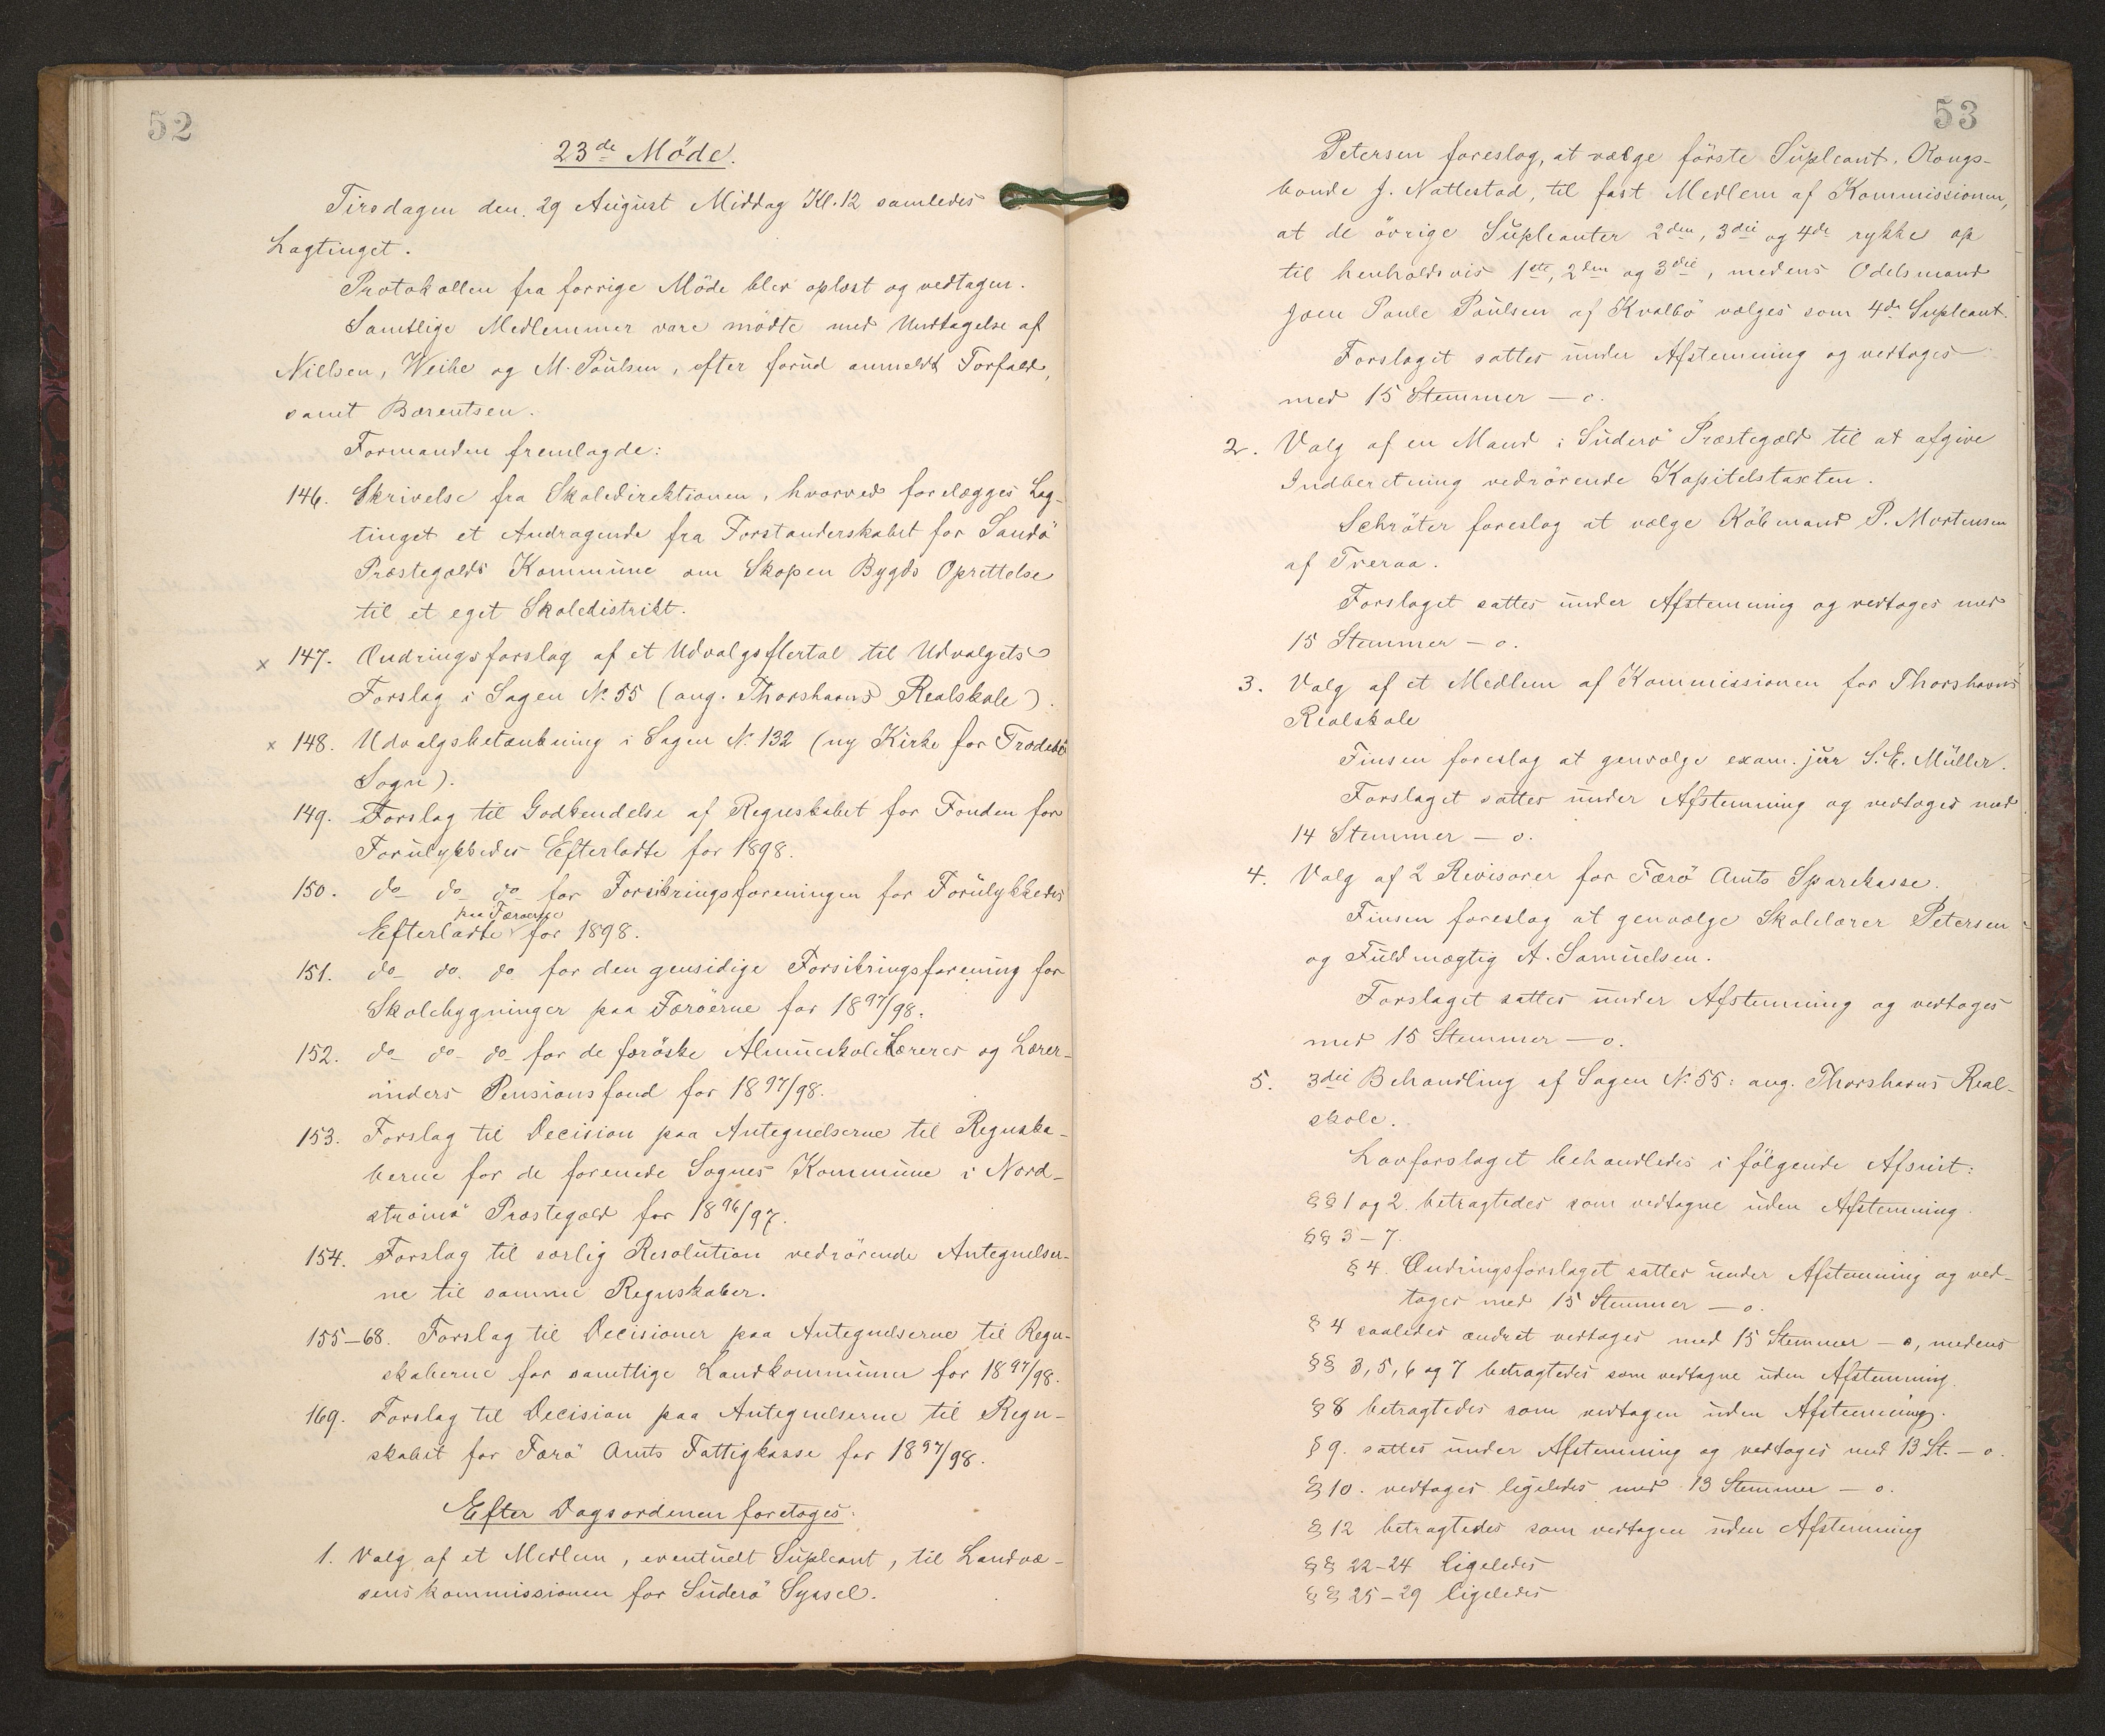 52
23de Möde.
Tirsdagen den 29 August Middag Kl. 12 samledes
Lagtinget.
Protokollen fra forrige Möde blev oplæst og vedtagen.
Samtlige Medlemmer vare mödte med Undtagelse af
Nielsen, Weihe og M. Poulsen, efter forud anmeldt Forfald,
samt Bærentsen.
Formanden fremlagde:
146. Skrivelse fra Skoledirektionen, hvorved forelægges Lag-
tinget et Andragende fra Forstanderskabet for Sandö
Præstegælds Kommune om Skopen Bygds Oprettelse
til et eget Skoledistrikt.
x 147. Ændringsforslag af et Udvalgsflertal til Udvalgets
Forslag i Sagen No. 55 (ang. Thorshavns Realskole).
x 148. Udvalgsbetænkning i Sagen No. 132 (ny Kirke for Trodebö
Sogn).
149. Forslag til Godkendelse af Regnskabet for Fonden for
Forulykkedes Efterladte for 1898.
150. do do do for Forsikringsforeningen for Forulykkedes
paa Færøerne
Efterladte for 1898.
151. do do. do for den gensidige Forsikringsforening for
Skolebygninger paa Færöerne for 1897/98.
152. do do do for de færöske Almueskolelæreres og Lærer-
inders Pensionsfond for 1897/98.
153. Forslag til Decision paa Antegnelserne til Regnska-
berne for de forenede Sognes Kommune i Nord-
strömö Præstegæld for 1896/97.
154. Forslag til særlig Resolution vedrörende Antegnelser-
ne til samme Regnskaber.
155-68. Forslag til Decisioner paa Antegnelserne til Regn-
skaberne for samtlige Landkommuner for 1897/98.
169. Forslag til Decision paa Antegnelserne til Regn-
skabet for Færö Amts Fattigkasse for 1897/98.
Efter Dagsordenen foretoges:
1. Valg af et Medlem, eventuelt Supleant, til Landvæ-
senskommissionen for Suderö Syssel.
53
Petersen foreslog, at vælge förste Supleant, Kongs-
bonde J. Nattestad, til fast Medlem af Kommissionen,
at de övrige Supleanter 2den, 3die og 4de rykke op
til henholdsvis 1ste, 2den og 3die, medens Odelsmand
Joen Poule Poulsen af Kvalbö vælges som 4de Supleant.
Forslaget sattes under Afstemning og vedtoges
med 15 Stemmer - o.
2. Valg af en Mand i Suderö Præstegæld til at afgive
Indberetning vedrörende Kapitelstaxten.
Schröter foreslog at vælge Köbmand P. Mortensen
af Tveraa.
Forslaget sattes under Afstemning og vedtoges med
15 Stemmer - o.
3. Valg af et Medlem af Kommissionen for Thorshavns
Realskole
Finsen foreslog at genvælge exam. jur S. E. Müller.
Forslaget sattes under Afstemning og vedtoges med
14 Stemmer - o.
4. Valg af 2 Revisorer for Færö Amts Sparekasse.
Finsen foreslog at genvælge Skolelærer Petersen
og Fuldmægtig A. Samuelsen.
Forslaget sattes under Afstemning og vedtoges
med 15 Stemmer - o.
5. 3die Behandling af Sagen No. 55: ang. Thorshavns Real-
skole.
Lovforslaget behandledes i fölgende Afsnit:
§§ 1 og 2. betragtedes som vedtagne uden Afstemning.
§§ 3-7.
§ 4. Ændringsforslaget sattes under Afstemning og ved-
toges med 15 Stemmer - o.
§ 4 saaledes ændret vedtoges med 15 Stemmer - o, medens
§§ 3, 5, 6 og 7 betragtedes som vedtagne uden Afstemning.
§ 8 betragtedes som vedtagen uden Afstemning.
§ 9. sattes under Afstemning og vedtoges med 13 St. - o.
§ 10. vedtoges ligeledes med 13 Stemmer - o.
§ 12 betragtedes som vedtagen uden Afstemning
§§ 22-24 ligeledes
§§ 25-29 ligeledes